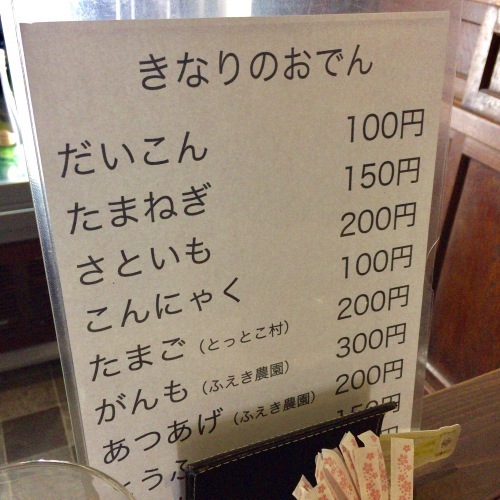 きなりのおでん
だいこん 100円
たまねぎ 150円
さといも 200円
こんにゃく 100円
たまご（とっとこ村） 200円
がんも（ふえき農園） 300円
あつあげ（ふえき農園） 200円
とうふ 150円